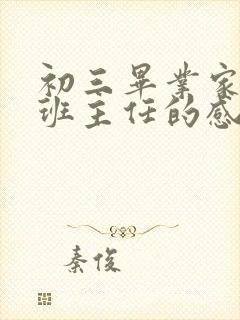 初三畢業家
班主任的感
秦俊